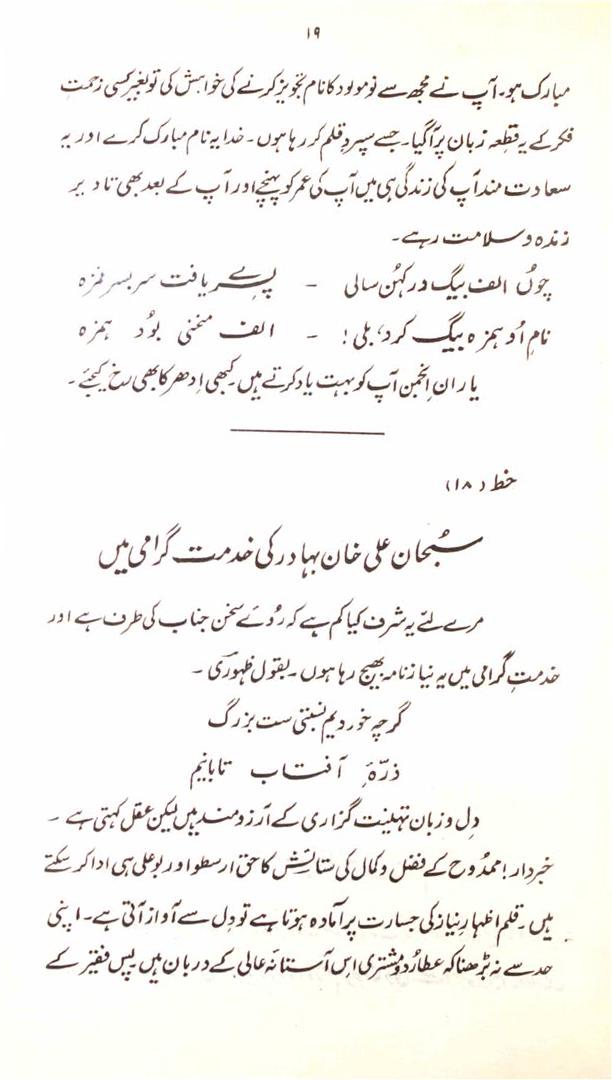 ۱۹
مبارک ہو۔ آپ نے مجھ سے نومولود کا نام تجویز کرنے کی خواہش کی تو بغیر کسی زحمتِ
فکر کے یہ قطعہ زبان پر آگیا۔ جسے سپردِ قلم کر رہا ہوں۔ خدا یہ نام مبارک کرے اور یہ
سعادت مند آپ کی زندگی ہی میں آپ کی عمر کو پہنچے اور آپ کے بعد بھی تا دیر
زندہ و سلامت رہے۔
چوں الف بیگ در کہُن سالی - پسرے یافت سر بسر غمزہ
نامِ اُو ہمزہ بیگ کرد، بلی! - الف منحنی بوَد ہمزہ
یارانِ انجمن آپ کو بہت یاد کرتے ہیں۔ کبھی اِدھر کا بھی رخ کیجئے۔
خط (۱۸)
سُبحان علی خان بہادر کی خدمت گرامی میں
مرے لئے یہ شرف کیا کم ہے کہ رُوئے سخن جناب کی طرف ہے اور
خدمتِ گرامی میں یہ نیاز نامہ بھیج رہا ہوں۔ بقول ظہوریؔ۔
گرچہ خوردیم نسبتی ست بزرگ
ذرّۂ آفتاب تابانیم
دِل و زبان تہنیت گزاری کے آرزومند ہیں لیکن عقل کہتی ہے۔
خبردار! ممدُوح کے فضل و کمال کی ستائش کا حق ارسطو اور بوعلی ہی ادا کر سکتے
ہیں۔ قلم اظہارِ نیاز کی جسارت پر آمادہ ہوتا ہے تو دِل سے آواز آتی ہے۔ اپنی
حد سے نہ بڑھنا کہ عطارُد و مشتری اس آستانۂ عالی کے دربان ہیں۔ پس فقیر کے